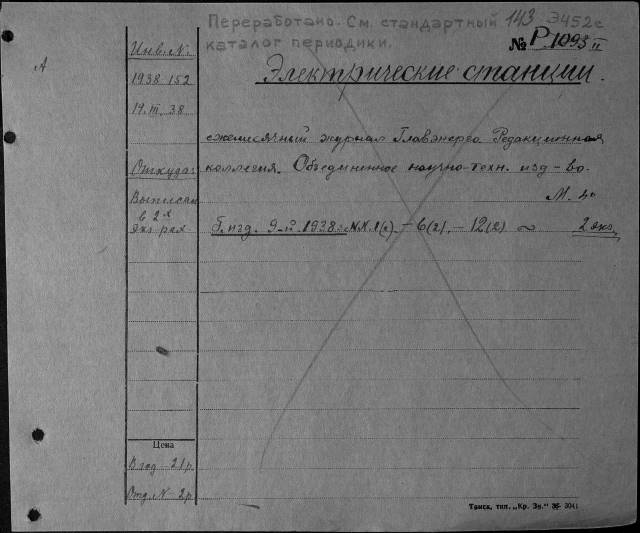 Переработано. См. стандартный 143 Э452с
каталог периодики. № Р.1093 II
А
Инв. N.
1938 152
17.III.38
Откуда:
Выписан
в 2х
экз рах.
Электрические станции.
ежемесячный журнал Главэнерго Редакционная
коллегия. Объединенное научно-техн. изд-во.
М.
Г. изд. 9-й. 1938 г. N.N. 1(2) - 6(2), - 12(2) ~ 2 экз.
Цена
В год - 21 р.
Отд. N - 2 р.
Томск, тип. „Кр. Зн." 3041